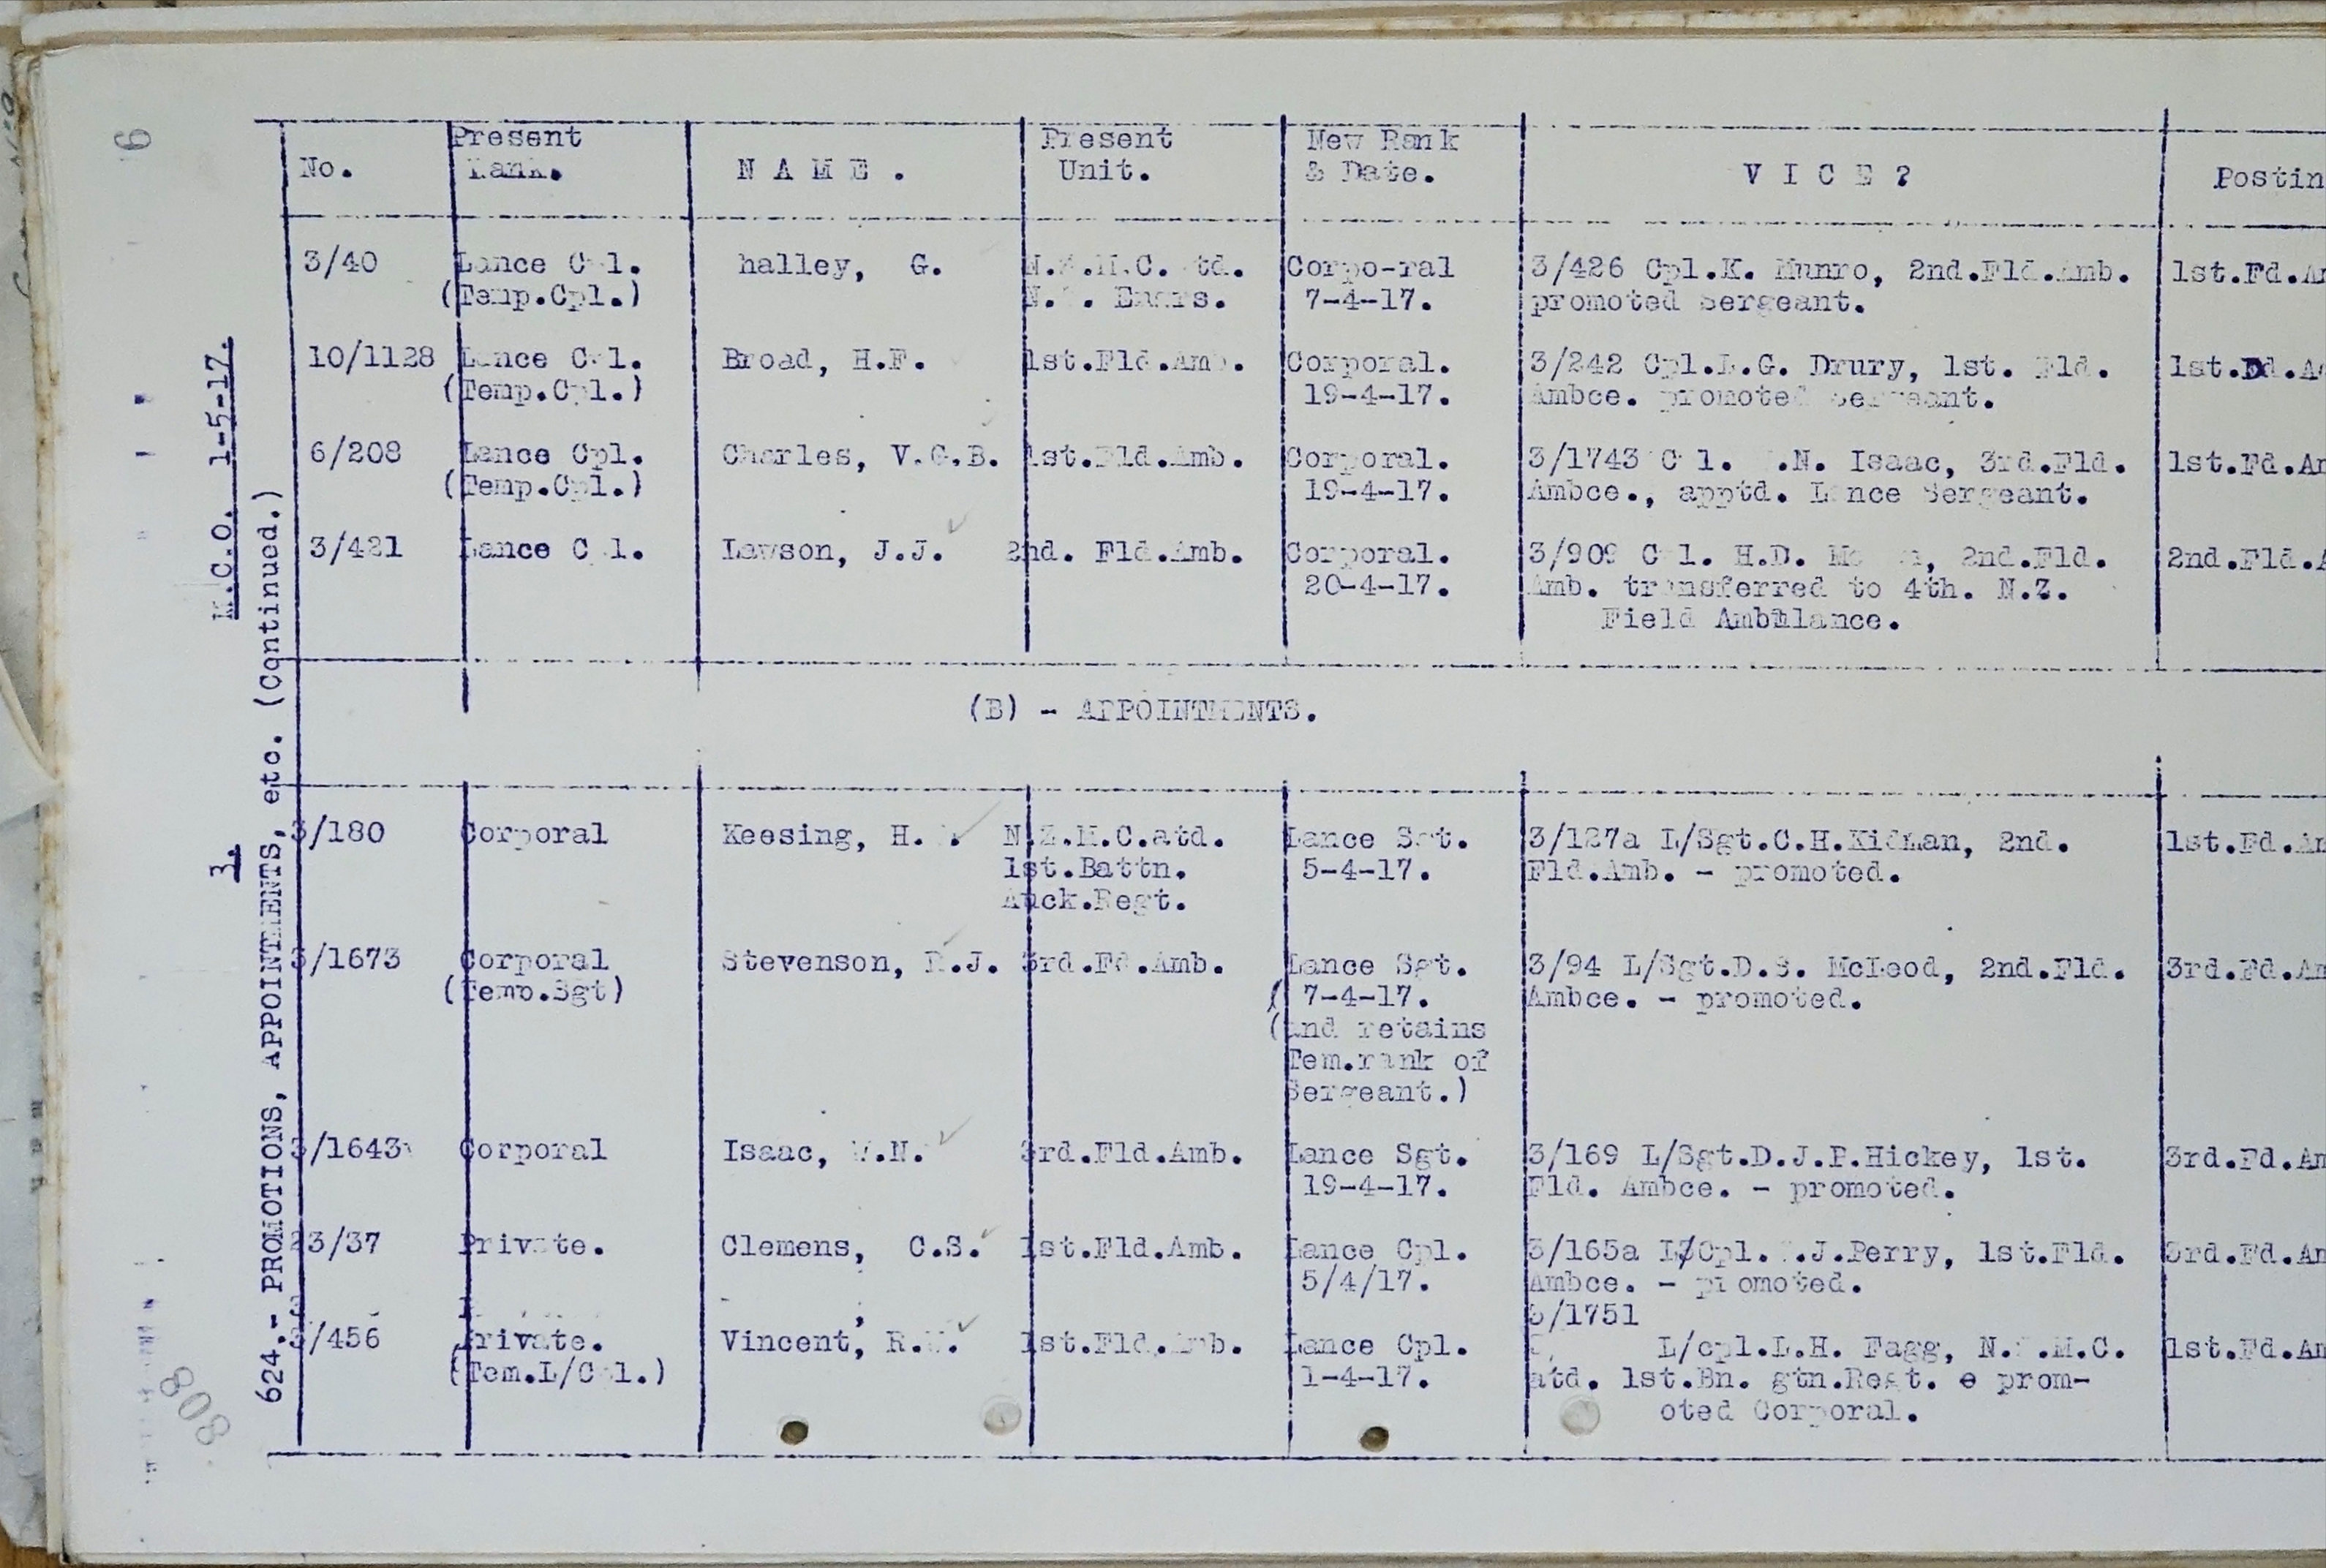 6
M.C.O. 1-5-17.
3.
624.- PROMOTIONS, APPOINTMENTS, etc. (Continued.)
No. Present Rank. N A M E . Present Unit. New Rank & Date. V I C E ? Postin
3/40 Lance Cpl. halley, G. N.Z.M.C. atd. Corpo-ral 3/426 Cpl.K. Munro, 2nd.Fld.Amb. 1st.Fd.Am
(Temp.Cpl.) N.Z. Engrs. 7-4-17. promoted Sergeant.
10/1128 Lance Cpl. Broad, H.F. 1st.Fld.Amb. Corporal. 3/242 Cpl.L.G. Drury, 1st. Fld. 1st.Fd.A
(Temp.Cpl.) 19-4-17. Ambce. promoted Sergeant.
6/208 Lance Cpl. Charles, V.G.B. 1st.Fld.Amb. Corporal. 3/1743 Cpl. .N. Isaac, 3rd.Fld. 1st.Fd.Am
(Temp.Cpl.) 19-4-17. Ambce., apptd. Lance Sergeant.
3/421 Lance Cpl. Lawson, J.J. 2nd. Fld.Amb. Corporal. 3/909 Cpl. H.D. 2nd.Fld. 2nd.Fld.A
20-4-17. Amb. transferred to 4th. N.Z.
Field Ambulance.
(B) - APPOINTMENTS.
3/180 Corporal Keesing, H. N.Z.M.C.atd. Lance Sgt. 3/127a L/Sgt.C.H.Kidman, 2nd. 1st.Fd.Am
1st.Battn. 5-4-17. Fld.Amb. - promoted.
Auck.Regt.
3/1673 Corporal Stevenson, R.J. 3rd.Fd.Amb. Lance Sgt. 3/94 L/Sgt.D.S. McLeod, 2nd.Fld. 3rd.Fd.Am
(Temp.Sgt) 7-4-17. Ambce. - promoted.
(and retains
Tem.rank of
Sergeant.)
3/1643 Corporal Isaac, W.N. 3rd.Fld.Amb. Lance Sgt. 3/169 L/Sgt.D.J.P.Hickey, 1st. 3rd.Fd.Am
19-4-17. Fld. Ambce. - promoted.
23/37 Private. Clemens, C.S. 1st.Fld.Amb. Lance Cpl. 3/165a L/Cpl. .J.Perry, 1st.Fld. 3rd.Fd.Am
5/4/17. Ambce. - promoted.
3/1751
3/456 Private. Vincent, R. 1st.Fld.Amb. Lance Cpl. L/cpl.L.H. Fagg, N.Z.M.C. 1st.Fd.Am
(Tem.L/Cpl.) 1-4-17. atd. 1st.Bn. gtn.Regt. e prom-
oted Corporal.
808